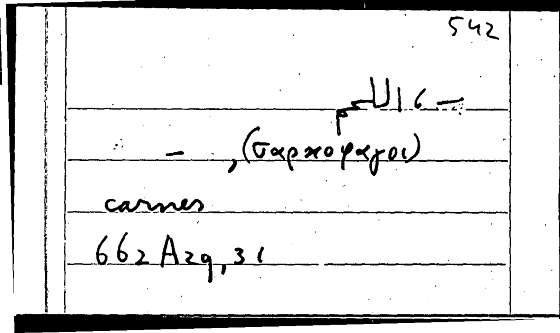 542
— 6 اللحم
— , (σαρκοφαγοι)
carnes
662 A29, 31